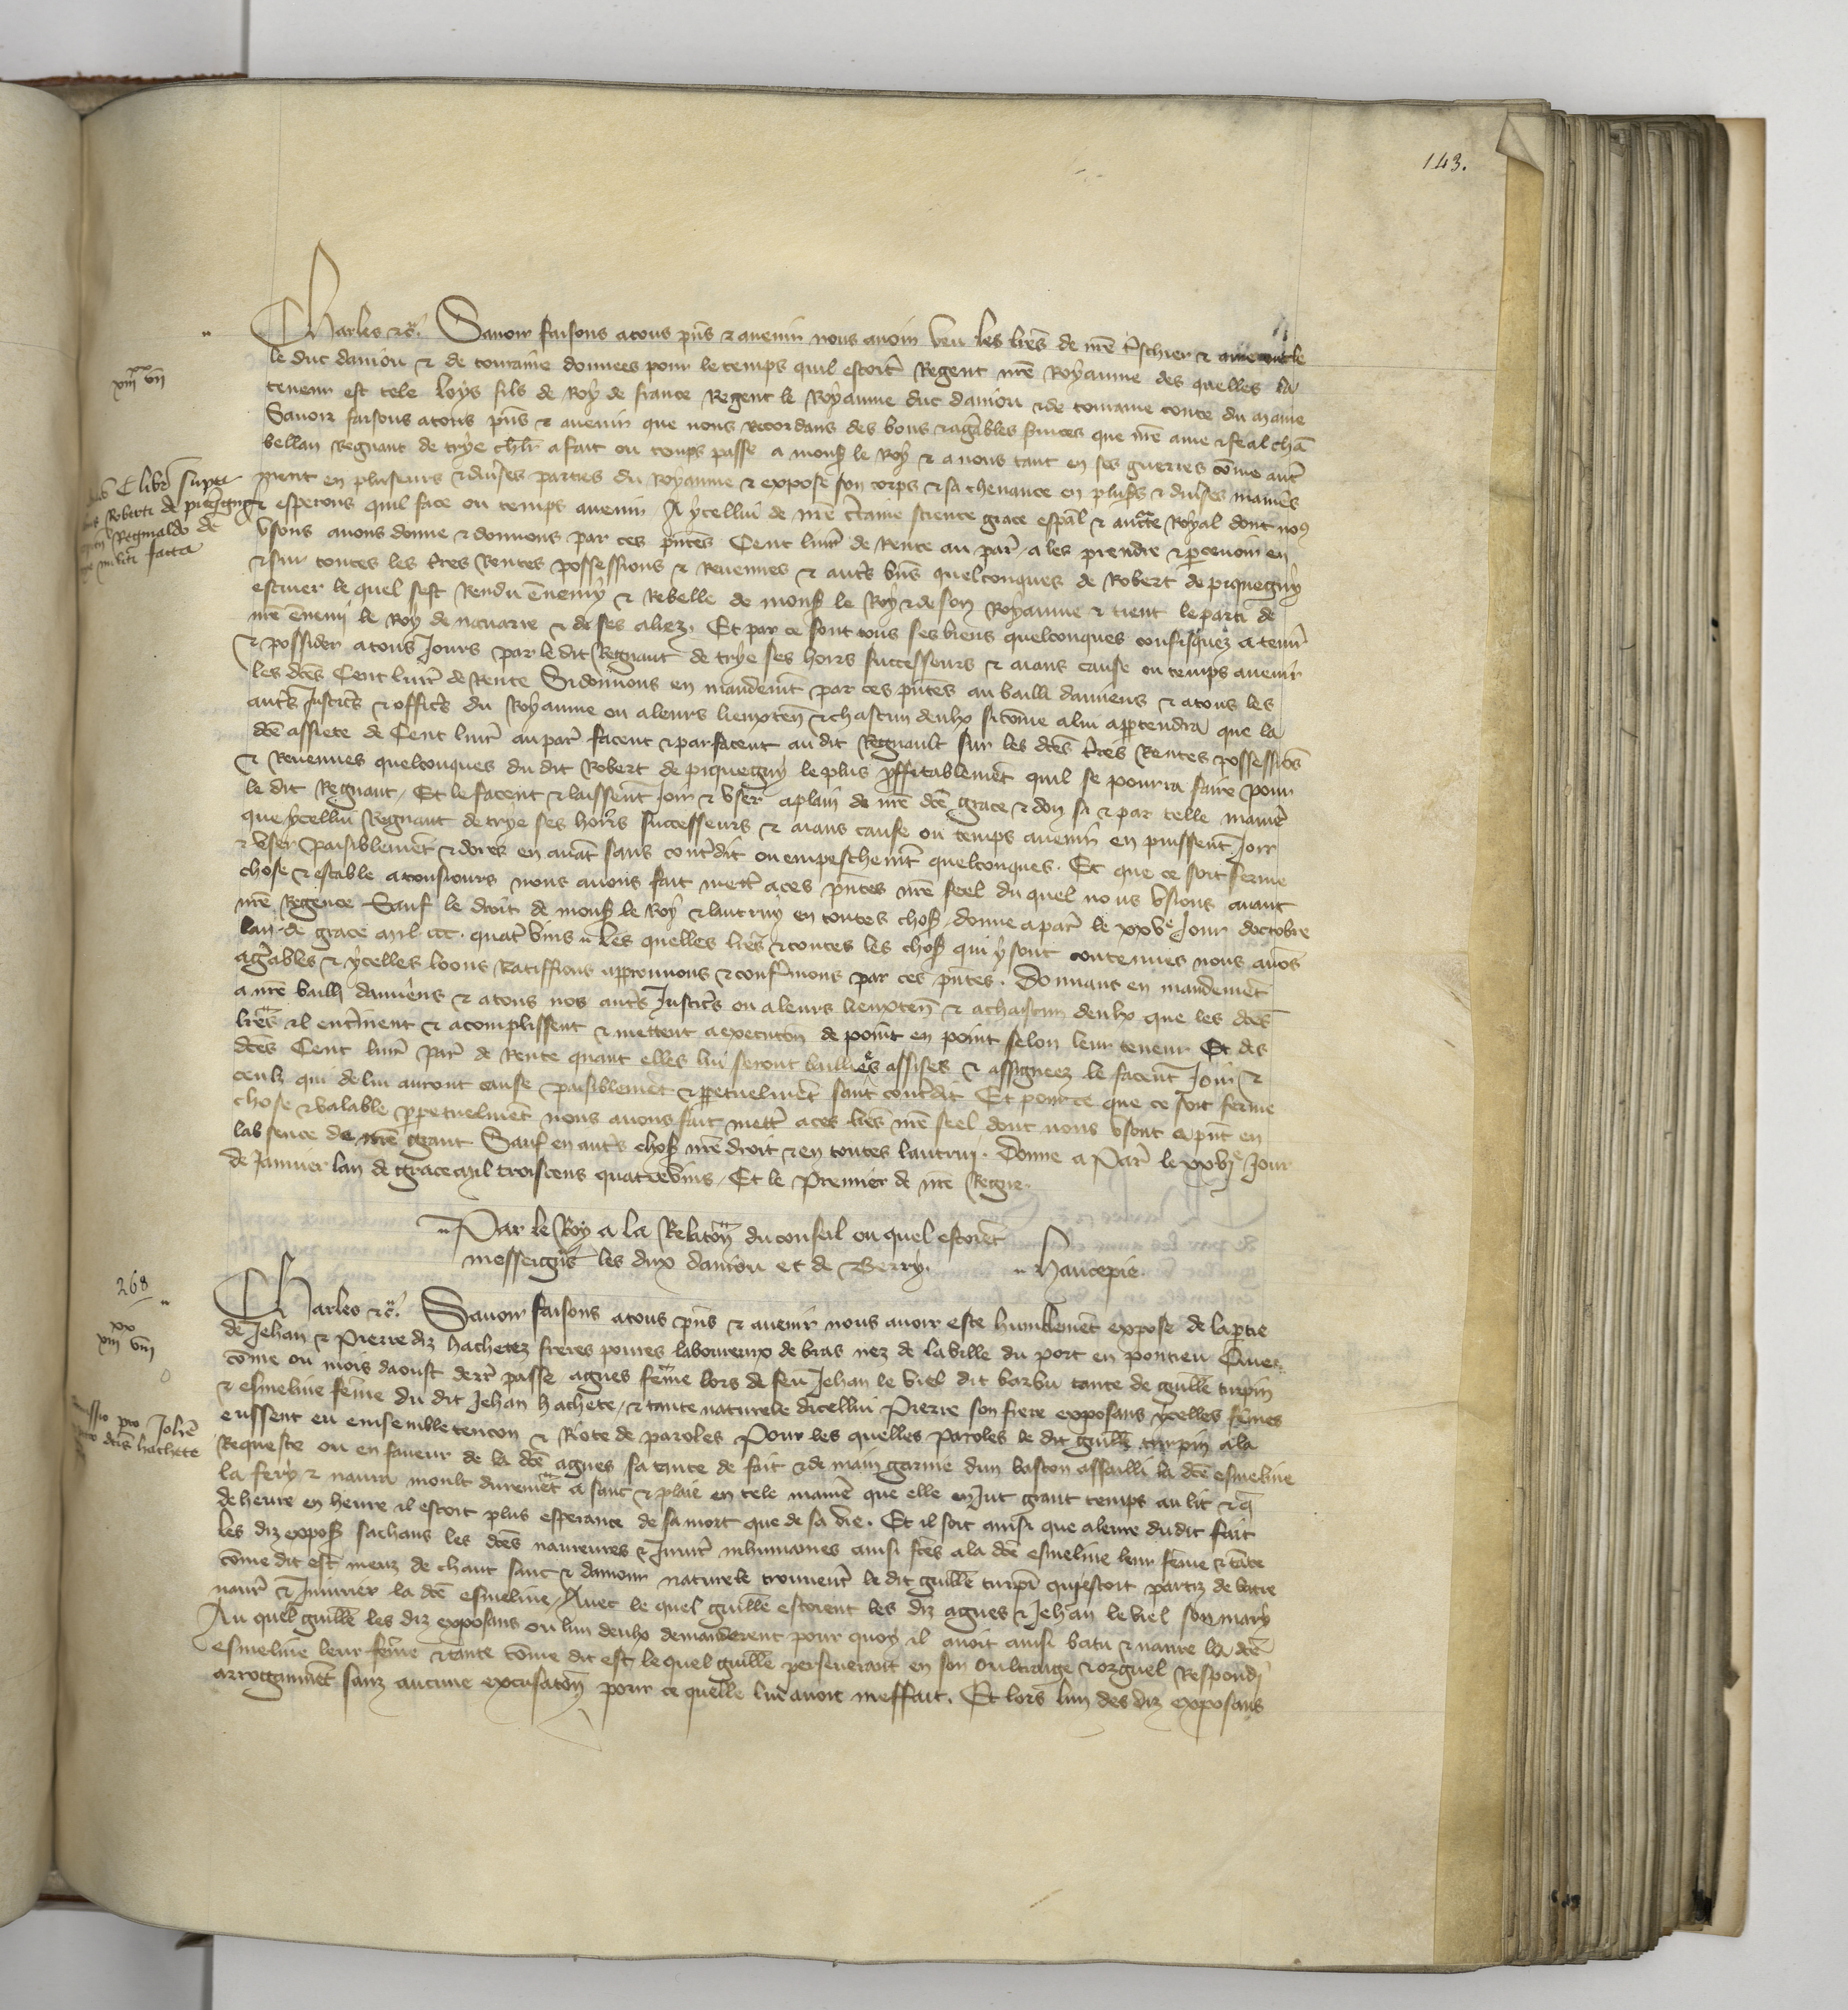 143.
Charles etc̃. Savoir faisons a tous p̃ns et avenir nous avoir veu les lr̃es de nr̃e t̃schier et ame oncle
le duc daniou et de touraine donnees pour le temps quil estoit Regent nr̃e Royaume des quelles la
teneur est tele Loys filz de Roy de france Regent le Royaume duc daniou et de touraine conte du maine
Savoir faisons a tous p̃ns et avenir que nous recordans des bons et agr̃ables s̃vices que nr̃e ame et feal chã
bellan Regnaut de trye chl̃r a fait ou temps passe a mons̃ le Roy et a nous tant en ses guerres cõme aut̃
ment en pluseurs et diṽses parties du Royaume et expose son corps et sa chevance en plus̃s et diṽses manieres
et esperons quil face ou temps avenir A ycellui de nr̃e c̃taine science grace esp̃al et auct̃e Royal dont nous
usons avons donne et donnons par ces p̃ntes Cent livr̃ de Rente au par̃ a les prendre et p̃cevoir en
et sur toutes les t̃res Rentes possessions et Revenues et autr̃s biens quelconques de Robert de piquegny
escuier le quel sest Rendu ennemy et Rebelle de mons̃ le Roy et de son Royaume et tient le parti de
nr̃e ennemi le Roy de navarre et de ses aliez. Et par ce sont tous ses biens quelconques confisquez a tenir
et possider a tous Jours par le dit Regnaut de trye ses hoirs successeurs et aians cause ou temps avenir
les dc̃es Cent livr̃ de Rente Si donnons en mandemt̃ par ces p̃ntes au bailli damiens et a tous les
autr̃s Justic̃s et offic̃s du Royaume ou a leurs lieuxten̄ et chascun deulx si cõme a lui app̃tendra que la
dc̃e assiete de Cent livr̃ au par̃ facent et parfacent au dit Regnault sur les dc̃es t̃res Rentes possessiõs
et Revenues quelconques du dit Robert de piquegny le plus p̃ffitablemẽt quil se pourra faire pour
le dit Regnaut, Et le facent et laissent Joir et user a plain de nr̃e dc̃e grace et don si et par telle manier̃
que ycellui Regnaut de trye ses hoirs successeurs et aians cause ou temps avenir en puissent Joir
et user paisiblemẽt et dores en avãt sans cont̃dit ou empeschemt̃ quelconques. Et que ce soit ferme
chose et estable a tousiours nous avons fait mett̃ a ces p̃ntes nr̃e seel du quel nous usions avant
nr̃e Regence Sauf le droit de mons̃ le Roy et lautruy en toutes chos̃ donne a par̃ le xxve Jour doctobre
lan de grace mil ccc. quat̃ vins Les quelles lr̃es et toutes les chos̃ qui y sont contenues nous avõs
agr̃ables et ycelles loons Ratiffions approuvons et conf̃mons par ces p̃ntes. Donnant en mandemẽt
a nr̃e bailli damiens et a tous nos autr̃s Justic̃s ou a leurs lieuxten̄ et a chascun deulx que les dc̃es
lr̃es il ent̃inent et acomplissent et mettent a executõn de point en point selon leur teneur Et des
dc̃es Cent livr̃ par̃ de Rente quant elles lui seront bailliees assises et assignees le facent Joir et
ceulz qui de lui auront cause paisiblemẽt et p̃petuelmẽt sanz cont̃dit Et pource que ce soit ferme
chose et valable p̃petuelmẽt nous avons fait mett̃ a ces lr̃es nr̃e seel dont nous usons a p̃nt en
labsence de nr̃e grant Sauf en autr̃s chos̃ nr̃e droit et en toutes lautrui. Donne a Par̃ le xxvie Jour
de Janvier lan de grace mil troiscens quatrevins, Et le Premier de nr̃e Regne.
Par le Roy a la Relatõn du conseil ou quel estoiẽt
messeign̄s les dux daniou et de Berry. Hancepie.
xiiiixx vii
E libr̃ super
Roberti de piquegny
Reginaldo de
militi facta
268
xiiiixx viii
Charles etc̃. Savoir faisons a tous p̃ns et avenir nous avoir este humblemẽt expose de la p̃tie
de Jehan et Pierre diz hachetez freres povres laboureurs de bras nez de la ville du port en pontieu Que
cõme ou mois daoust derr̃ passe agnes fẽme lors de feu Jehan le viel dit barbu tante de guill̃e turpin
et esmeline fẽme du dit Jehan hachete, et tante naturele dicellui Pierre son frere exposans ycelles fẽmes
eussent eu ensemble tencon et Riote de paroles Pour les quelles paroles le dit guill̃e turpin a la
Requeste ou en faveur de la dc̃e agnes sa tante de fait et de main garnie dun baston assailli la dc̃e esmeline
la fery et navra moult duremẽt a sanc et plaie en tele manier̃ que elle en Jut grant temps au lit et q̃
de heure en heure il estoit plus esperance de sa mort que de sa vie. Et il soit ainsi que a leure du dit fait
les diz expos̃ sachans les dc̃es navreures et Jniur̃ inhumaines ainsi fc̃es a la dc̃e esmeline leur fẽme et tãte
cõme dit est meuz de chaut sanc et damour naturele trouverẽt le dit guill̃e turpĩ qui estoit partiz de batre
navr̃ et Jniurier la dc̃e esmeline, Avec le quel guill̃e estoient les diz agnes et Jehan le viel son mary
Au quel guill̃e les diz exposans ou lun deulx demanderent pour quoy il avoit ainsi batu et navre la dc̃e
esmeline leur fẽme et tante cõme dit est le quel guill̃e perseverant en son oultraige et orguel Respondi
arroganmẽt sanz aucune excusatõn pour ce quelle lui avoit meffait. Et lors lun des diz exposans
pro Johẽ
dc̃is hachete